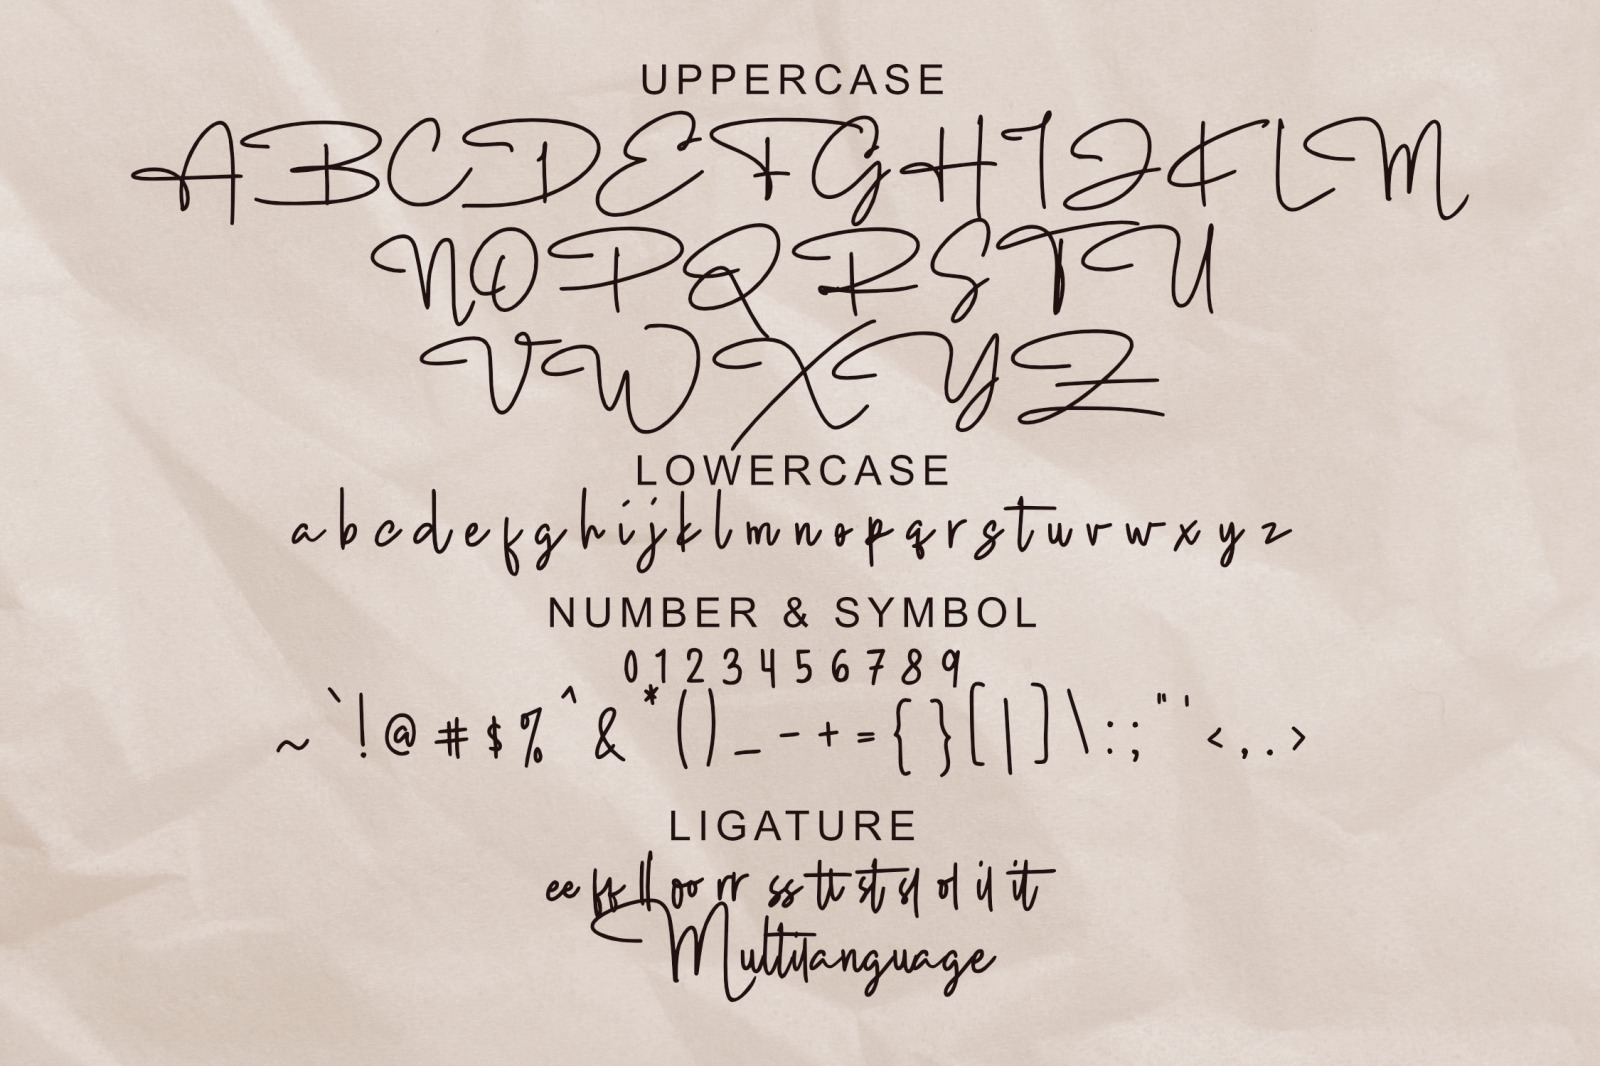 UPPERCASE
A B C D E F G H I J K L M
N O P Q R S T U
V W X Y Z
LOWERCASE
a b c d e f g h i j k l m n o p q r s t u v w x y z
NUMBER & SYMBOL
0 1 2 3 4 5 6 7 8 9
~ ` ! @ # $ % ^ & * ( ) _ - + = { } [ | ] \ : ; " ' < , . >
LIGATURE
ee ff ll oo rr ss tt st sl ol il it
Multilanguage